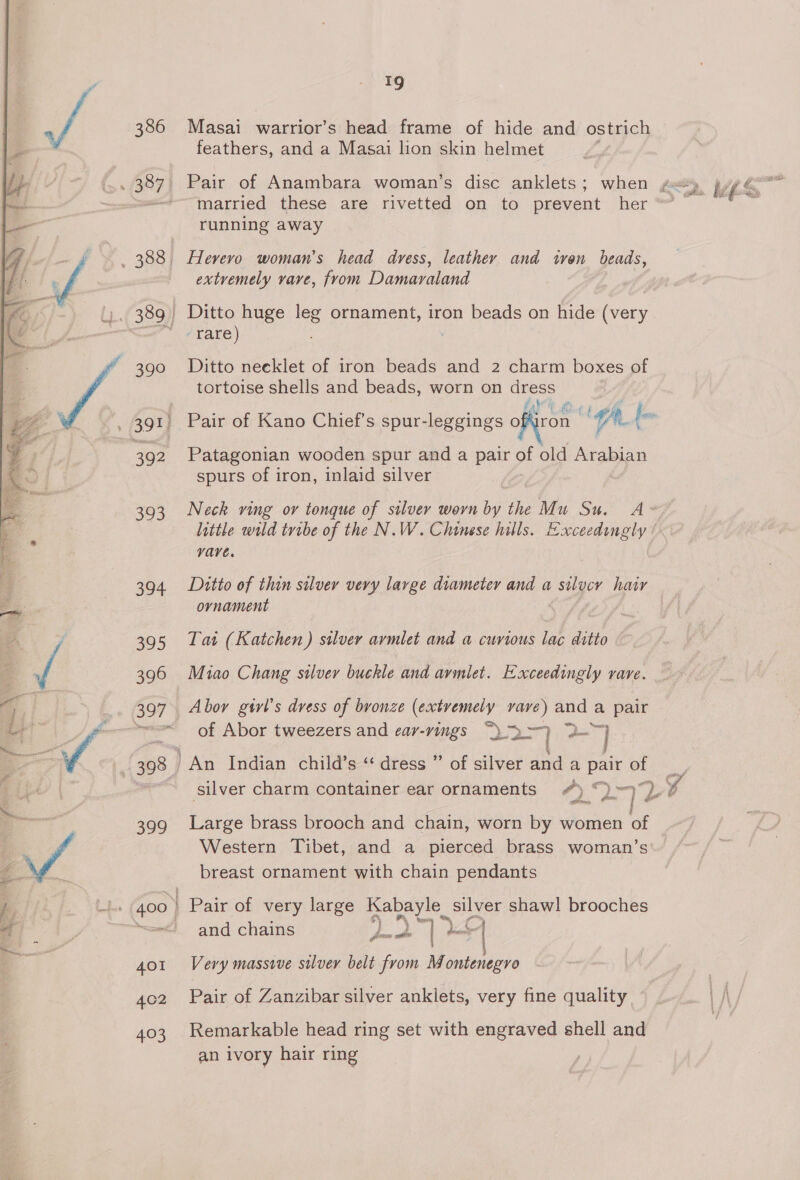 19
386 Masai warrior's head frame of hide and ostrich
feathers, and a Masai lion skin helmet
387 Pair of Anambara woman's disc anklets; when
married these are rivetted on to prevent her
running away
388 Herero woman's head dress, leather and iron beads,
extremely rare, from Damaraland
389 Ditto huge leg ornament, iron beads on hide (very
rare)
390 Ditto necklet of iron beads and 2 charm boxes of
tortoise shells and beads, worn on dress
391 Pair of Kano Chief's spur-leggings of iron
392 Patagonian wooden spur and a pair of old Arabian
spurs of iron, inlaid silver
393 Neck ring or tonque of silver worn by the Mu Su. A
little wild tribe of the N.W. Chinese hills. Exceedingly
rare.
394 Ditto of thin silver very large diameter and a silver hair
ornament
395 Tai (Katchen) silver armlet and a curious lac ditto
396 Miao Chang silver buckle and armlet. Exceedingly rare.
397 Abor girl's dress of bronze (extremely rare) and a pair
of Abor tweezers and ear-rings
398 An Indian child's “dress” of silver and a pair of
silver charm container ear ornaments
399 Large brass brooch and chain, worn by women of
Western Tibet, and a pierced brass woman's
breast ornament with chain pendants
400 Pair of very large Kabayle silver shawl brooches
and chains
401 Very massive silver belt from Montenegro
402 Pair of Zanzibar silver anklets, very fine quality
403 Remarkable head ring set with engraved shell and
an ivory hair ring